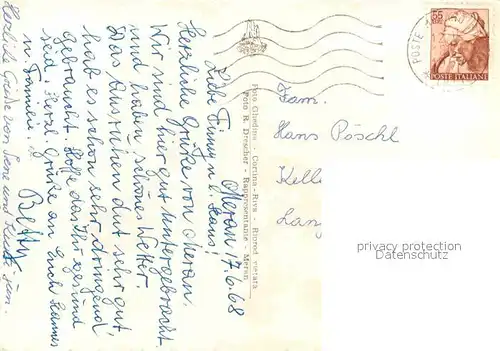 Meran, 17.6.68
Liebe Fanny u. Hans!
Herzliche Grüße von Meran.
Wir sind hier gut untergebracht
und haben schönes Wetter.
Das Ausruhen tut sehr gut,
hab es schon sehr dringend
gebraucht. Hoffe daß Ihr gesund
seid. Herzl. Grüße an Euch Hannes
u. Familie.
Betty
Herzliche Grüße von Sene und jun.
Foto Ghedina - Cortina-Riva - Riprod. vietata
Foto R. Drescher - Rappresentable - Meran
POSTE
55
LIRE
POSTE ITALIANE
Fam.
Hans Pöschl
Kelle
Lang
privacy protection
watermark